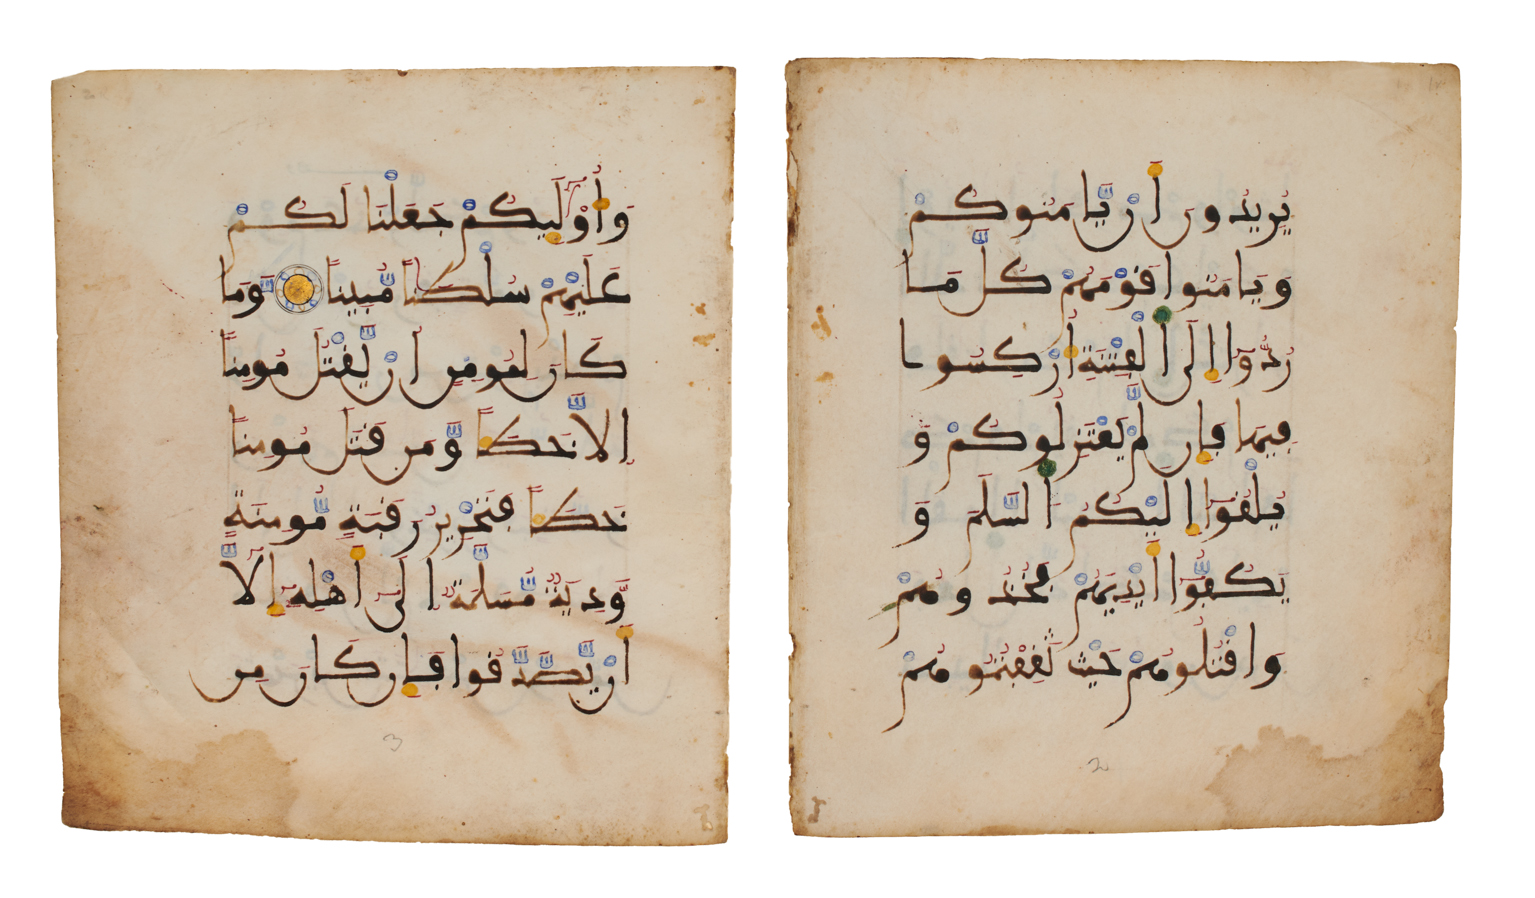 يريدون أن يامنوكم
ويامنوا قومهم كل ما
ردوا إلى الفتنة أركسوا
فيها فإن لم يعتزلوكم و
يلقوا إليكم السلم و
يكفوا أيديهم فخذوهم
واقتلوهم حيث ثقفتموهم
2
وأوليكم جعلنا لكم
عليهم سلطنا مبينا وما
كان لمومن أن يقتل مومنا
إلا خطئا ومن قتل مومنا
خطئا فتحرير رقبة مومنة
ودية مسلمة إلى أهله إلا
أن يصدقوا فإن كان من
3